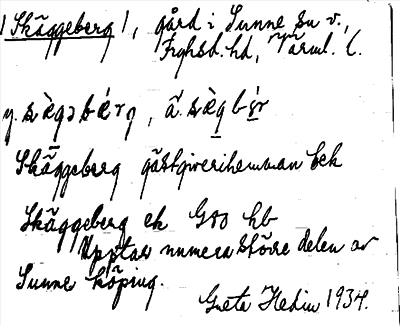 1 Skäggeberg 1, gård i Sunne sn v.,
Frghsd. hd, Värml. l.
y. sægəbérg, ä. sægbér
Skäggeberg gästgiverihemman bek
Skäggeberg ek G80 hb
Upptar numera större delen av
Sunne köping.
Greta Hedin 1934.